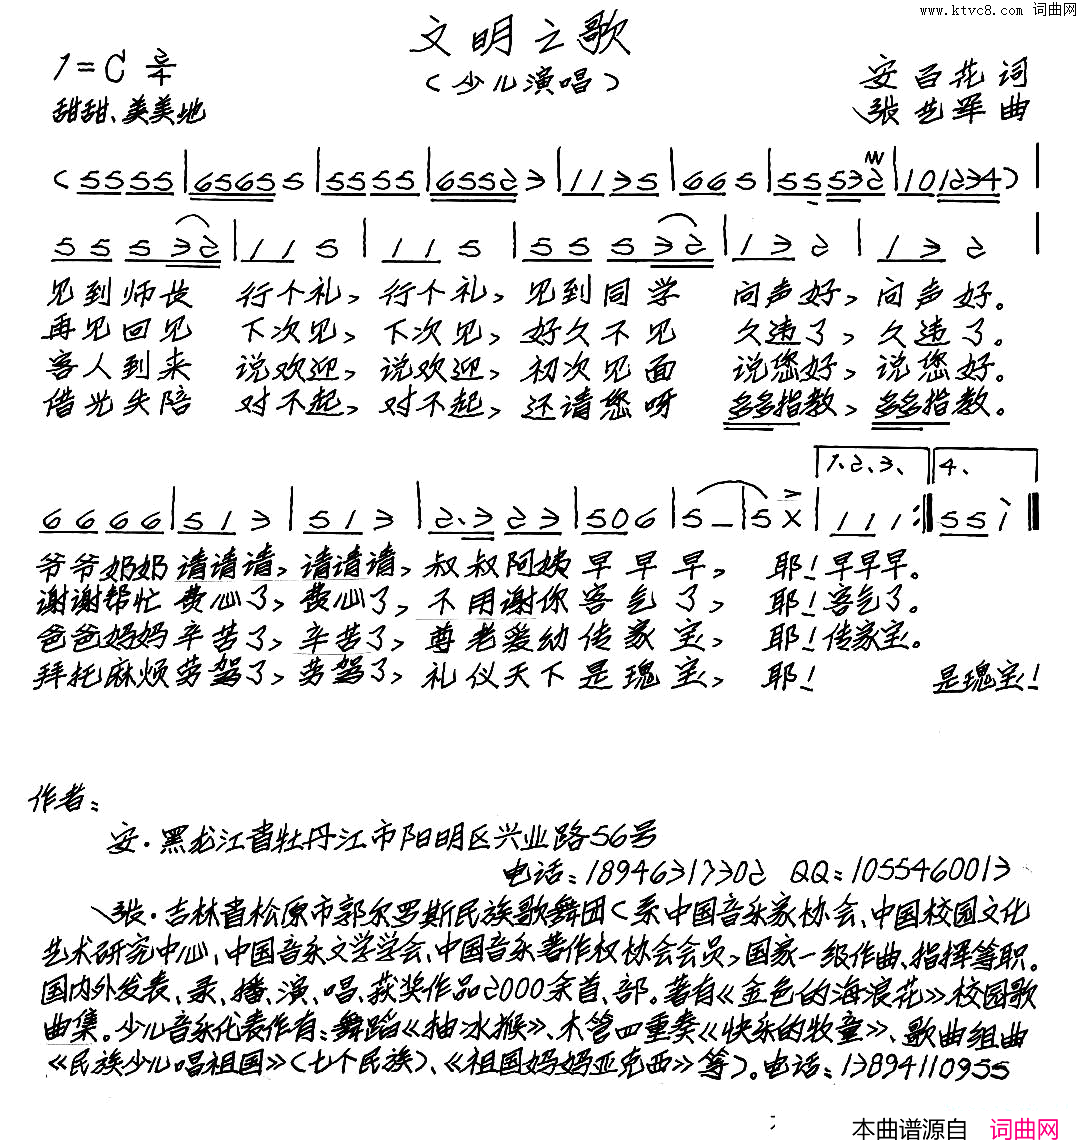 www.ktvc8.com 词曲网
文明之歌
1=C 2/4
（少儿演唱）
安百花 词
甜甜、美美地
张艺军 曲
(5555|65655|5555|65523|1135|665|55532|101234)|
55532|115|115|55532|132|132|
见到师长 行个礼, 行个礼, 见到同学 问声好, 问声好。
再见回见 下次见, 下次见, 好久不见 久违了, 久违了。
客人到来 说欢迎, 说欢迎, 初次见面 说您好, 说您好。
借光失陪 对不起, 对不起, 还请您呀 多多指教, 多多指教。
1、2、3、 4、
6666|513|513|2·323|506|5–|5X|111:||55i||
爷爷奶奶 请请请, 请请请, 叔叔阿姨 早早早, 耶! 早早早。
谢谢帮忙 费心了, 费心了, 不用谢你 客气了, 耶! 客气了。
爸爸妈妈 辛苦了, 辛苦了, 尊老爱幼 传家宝, 耶! 传家宝。
拜托麻烦 劳驾了, 劳驾了, 礼仪天下 是瑰宝, 耶! 是瑰宝!
作者:
安·黑龙江省牡丹江市阳明区兴业路56号
电话:18946317302 QQ:1055460013
张·吉林省松原市郭尔罗斯民族歌舞团(系中国音乐家协会、中国校园文化
艺术研究中心、中国音乐文学学会、中国音乐著作权协会会员,国家一级作曲、指挥等职。
国内外发表、录、播、演、唱、获奖作品2000余首、部。著有《金色的海浪花》校园歌
曲集。少儿音乐代表作有:舞蹈《抽冰猴》、木管四重奏《快乐的牧童》、歌曲组曲
《民族少儿唱祖国》(七个民族)、《祖国妈妈亚克西》等)。电话:13894110955
本曲谱源自 词曲网